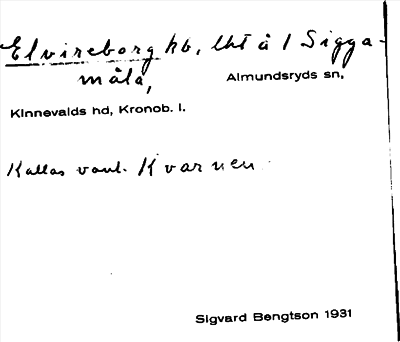 Elvireborg hb, lht å 1 Sigga-
måla, Almundsryds sn,
Kinnevalds hd, Kronob. l.
Kallas vanl. Kvarnen
Sigvard Bengtson 1931